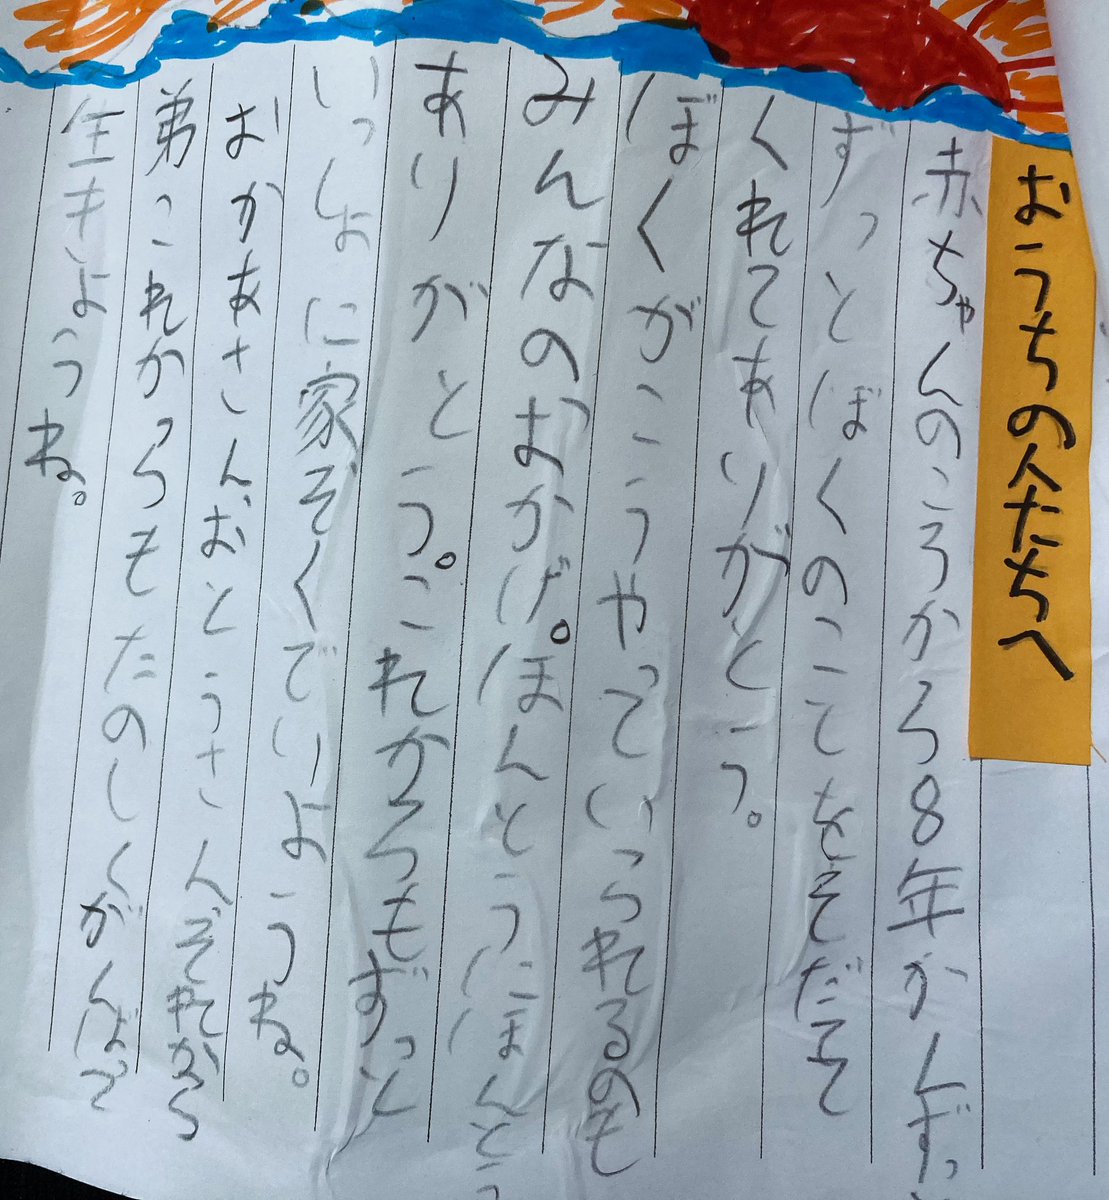 おうちの人たちへ
赤ちゃんのころから8年かんずっ
ずっとぼくのことをそだてて
くれてありがとう。
ぼくがこうやっていられるのも
みんなのおかげ。ほんとうにほんとう
ありがとう。これからもずっと
いっしょに家ぞくでいようね。
おかあさんおとうさんそれから
弟これからもたのしくがんばって
生きようね。